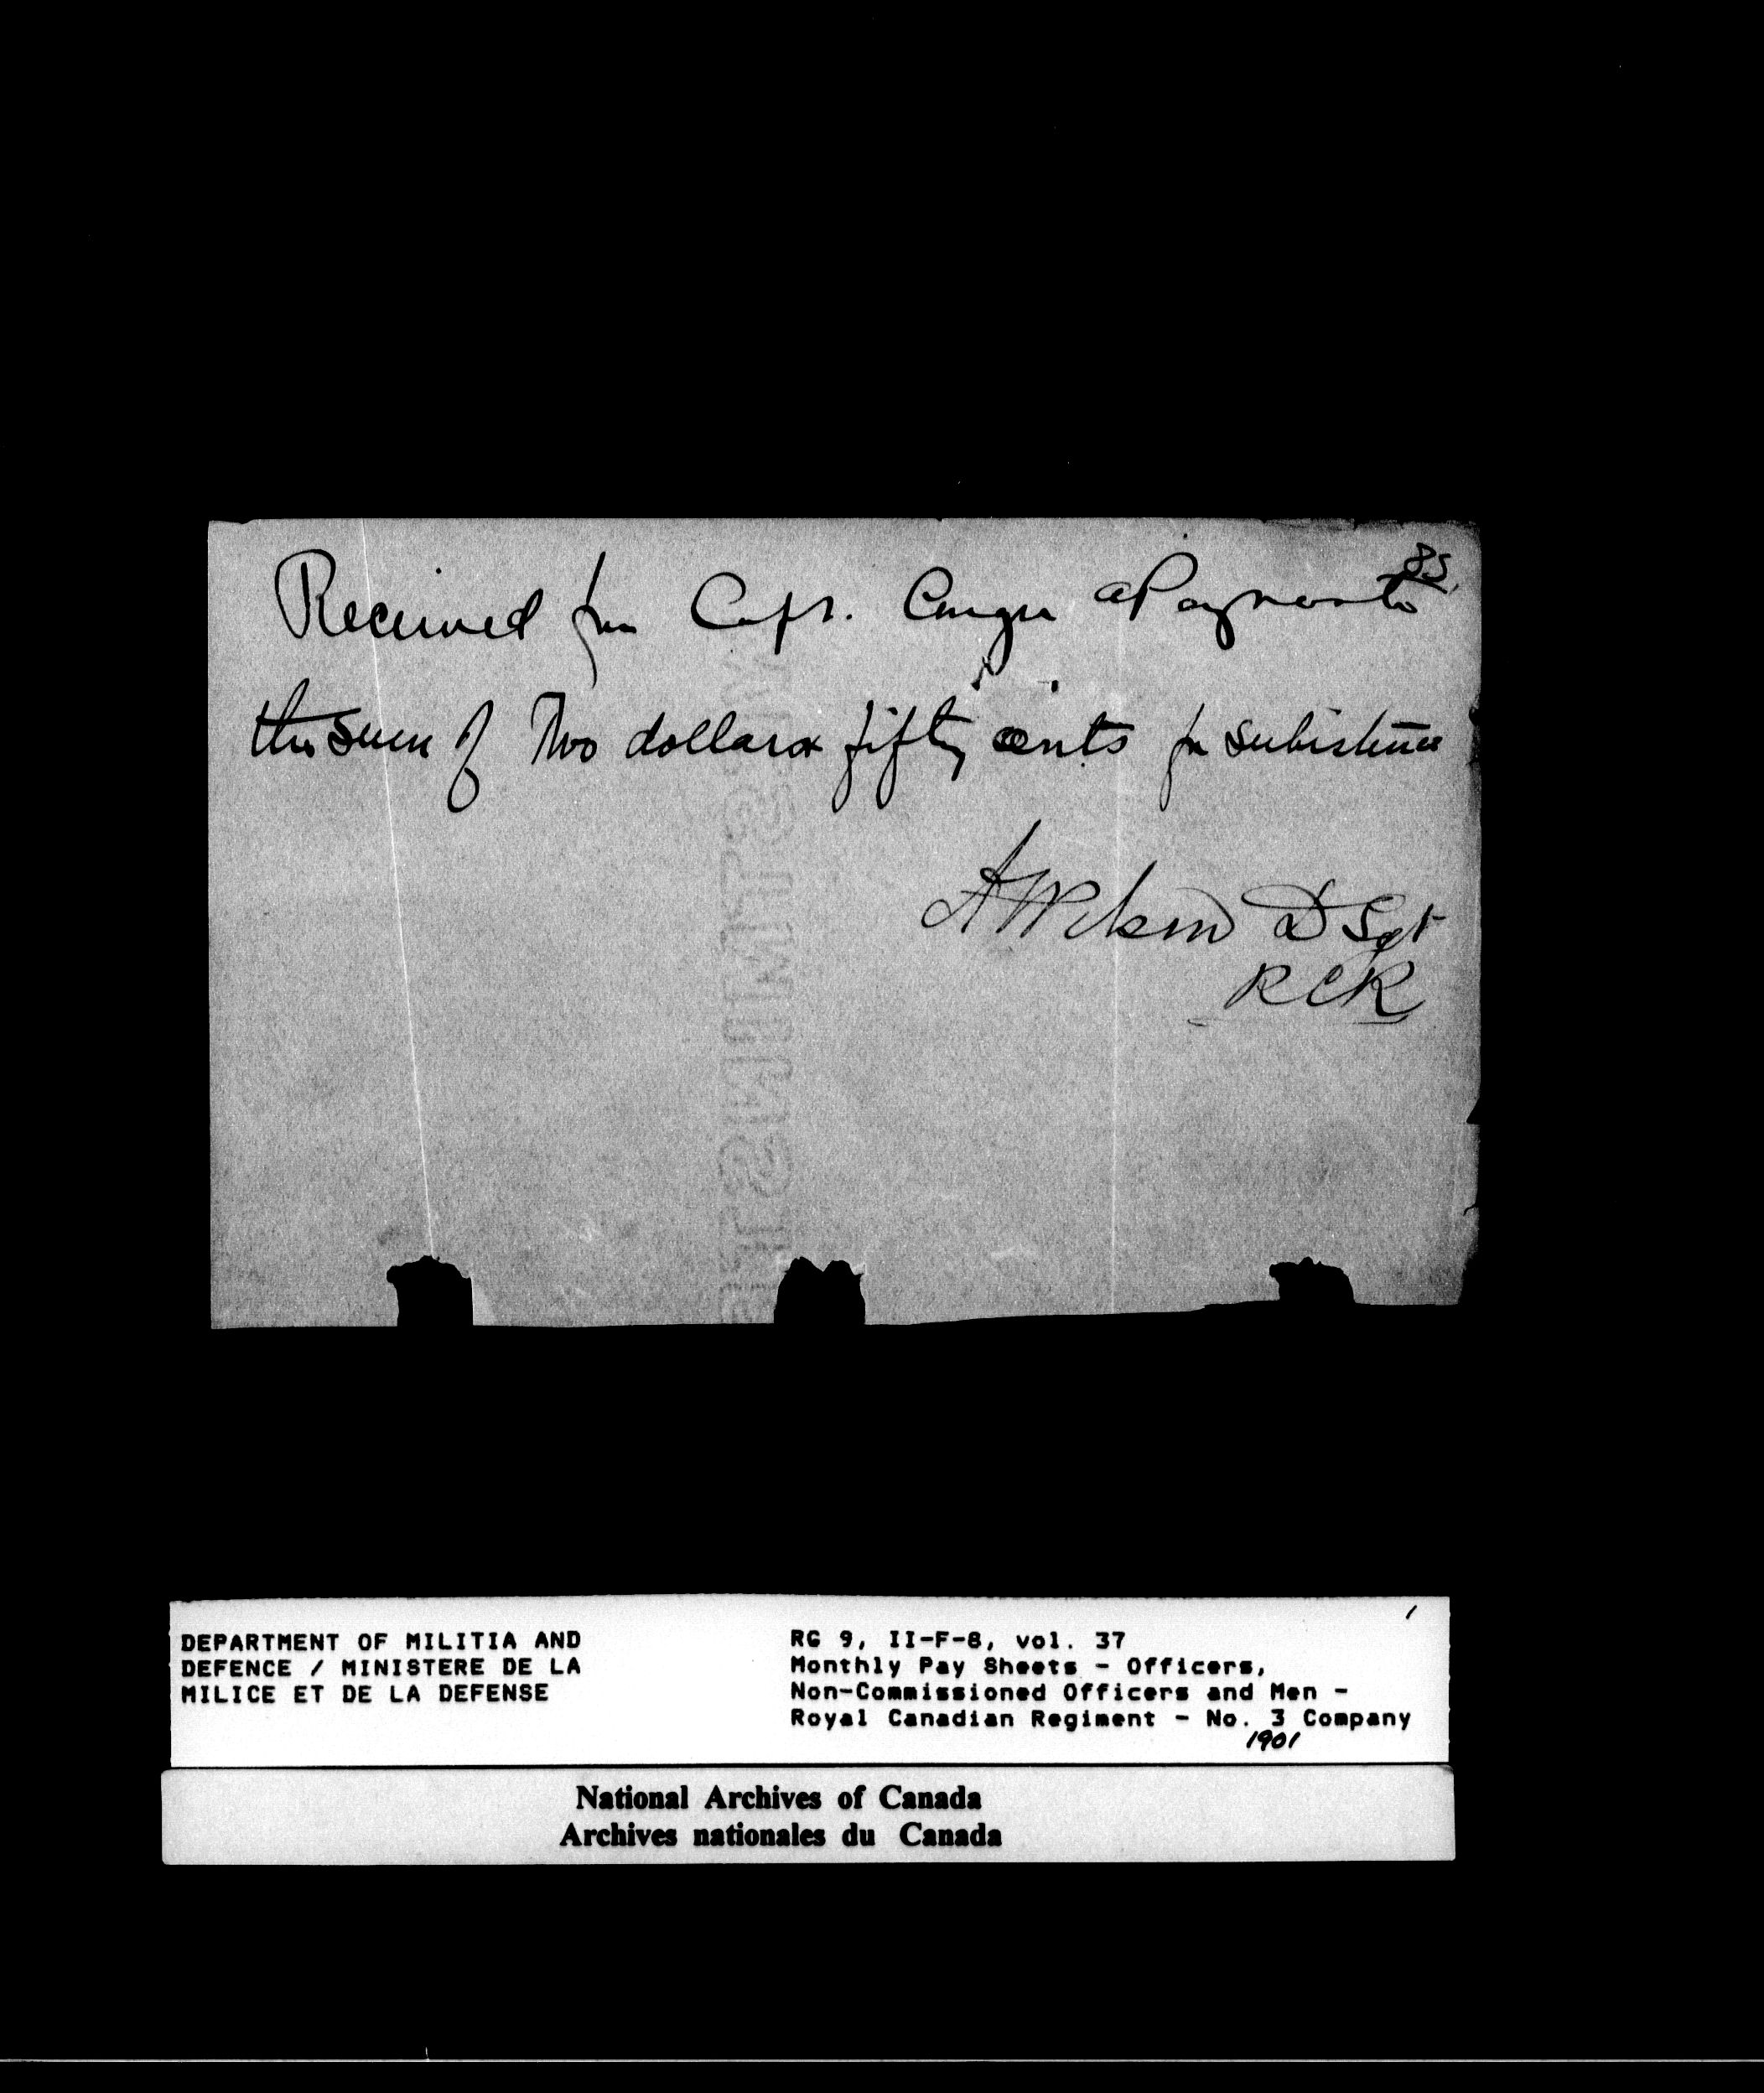 85.
Received from Capt. a Paymaster
the sum of Two dollars fifty cents for subistence
A Wilson D Sgt
RCR
1
DEPARTMENT OF MILITIA AND
DEFENCE / MINISTERE DE LA
MILICE ET DE LA DEFENSE
RG 9, II-F-8, vol. 37
Monthly Pay Sheets - Officers,
Non-Commissioned Officers and Men -
Royal Canadian Regiment - No. 3 Company
1901
National Archives of Canada
Archives nationales du Canada